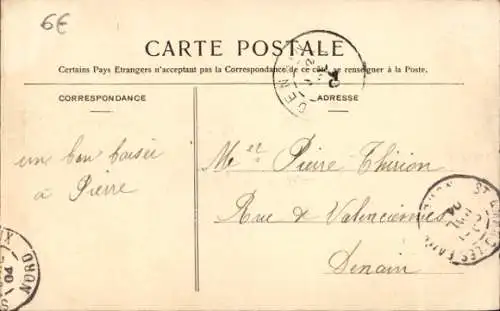 6€
CARTE POSTALE
Certains Pays Etrangers n'acceptant pas la Correspondance de ce côté, se renseigner à la Poste.
CORRESPONDANCE
ADRESSE
un bon baiser
à Pierre
Mr Pierre Thirion
Rue de Valenciennes
Denain
NORD
04